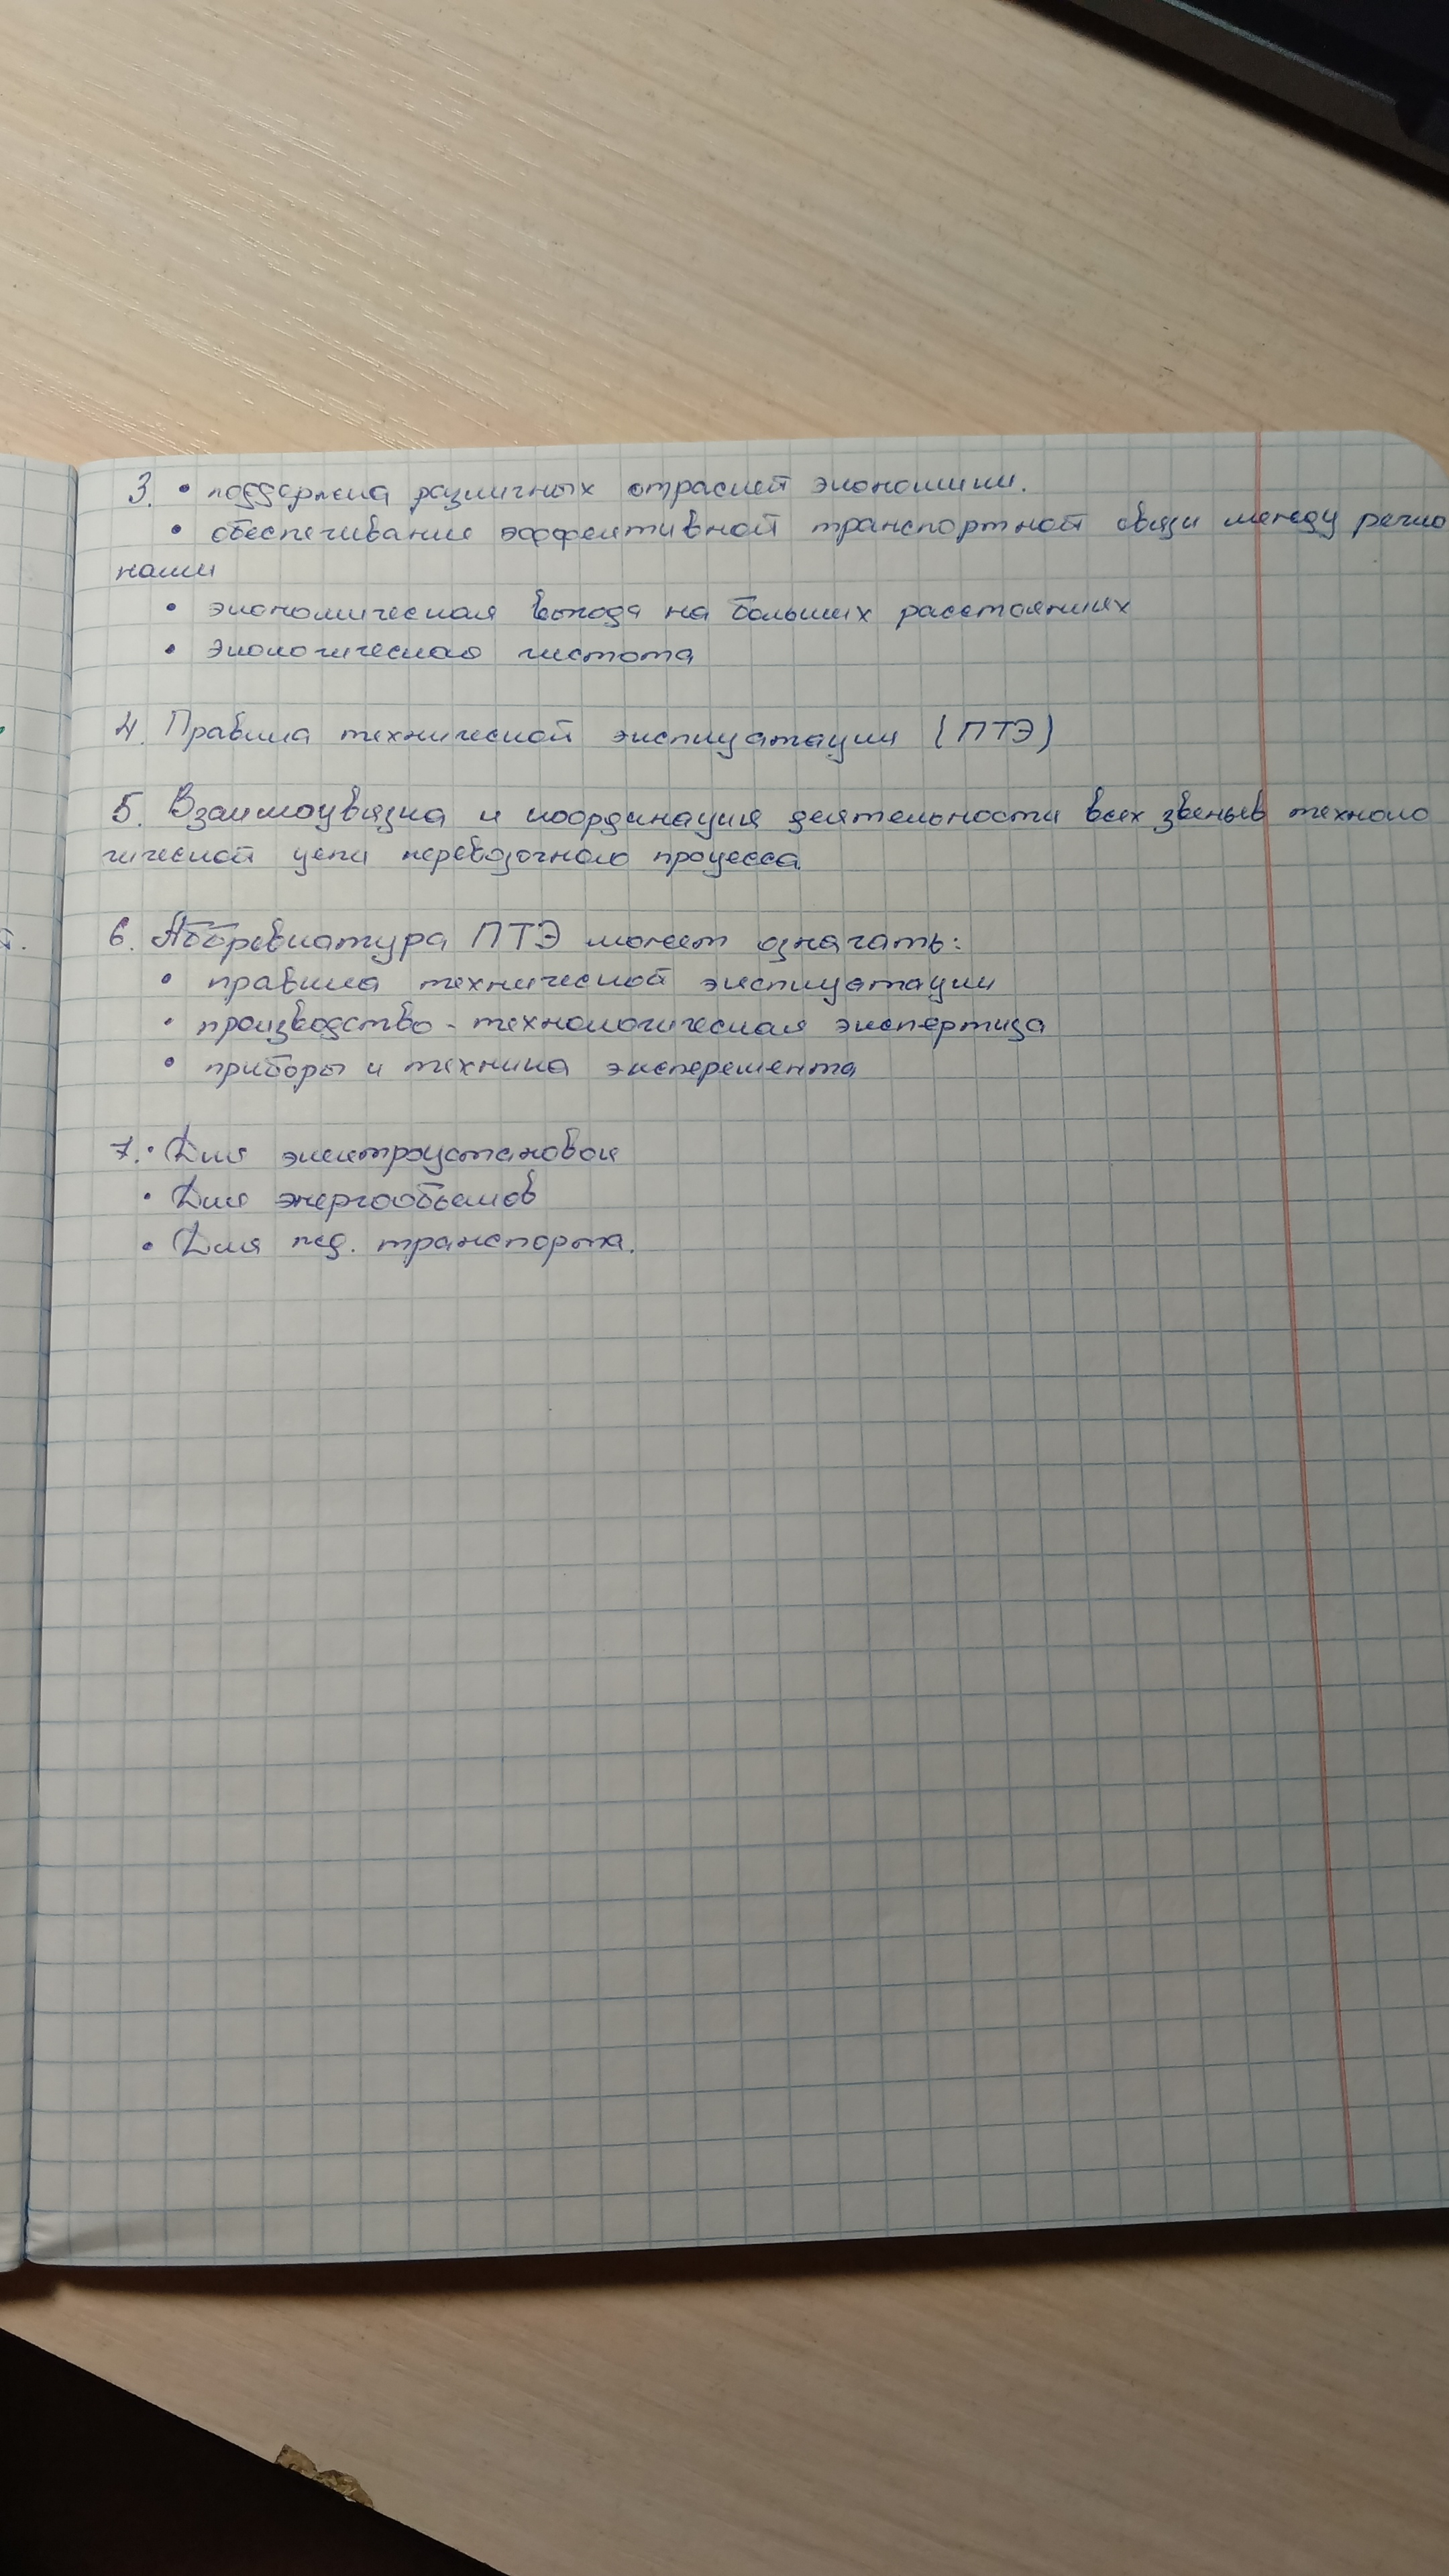 3. • поддержка различных отраслей экономики.
• обеспечивание эффективной транспортной связи между регио
нами
• экономическая выгода на больших расстояниях
• экологическая чистота
4. Правила технической эксплуатации (ПТЭ)
5. Взаимоувязка и координация деятельности всех звеньев техноло
гической цепи перевозочного процесса
6. Аббревиатура ПТЭ может означать:
• правила технической эксплуатации
• производство - технологическая экспертиза
• приборы и техника эксперемента
7. • Для электроустановок
• Для энергообъемов
• Для жд. транспорта.